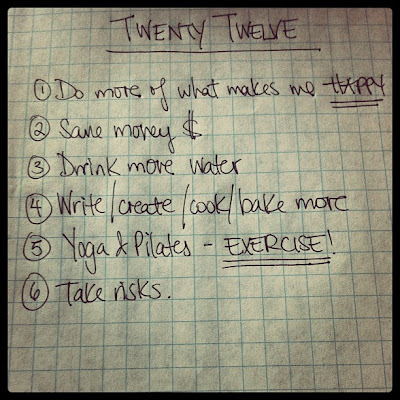 TWENTY TWELVE
① Do more of what makes me HAPPY
② Save money $
③ Drink more water
④ Write/create/cook/bake more
⑤ Yoga & Pilates - EXERCISE!
⑥ Take risks.